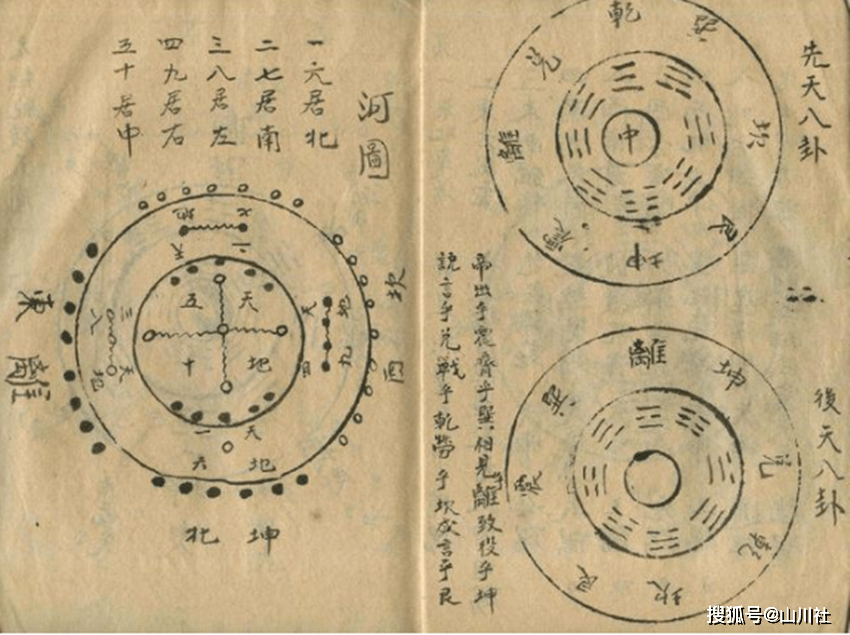 先天八卦
乾
巽
坎
艮
坤
震
離
兌
中
後天八卦
離
坤
兌
乾
坎
艮
震
巽
帝出乎震齊乎巽相見乎離致役乎坤
說言乎兌戰乎乾勞乎坎成言乎艮
河圖
一六居北
二七居南
三八居左
四九居右
五十居中
七地
二天
坎西
地九
天四
天地
五十
三八
天地
東離
天地
一六
坤北
搜狐号@山川社